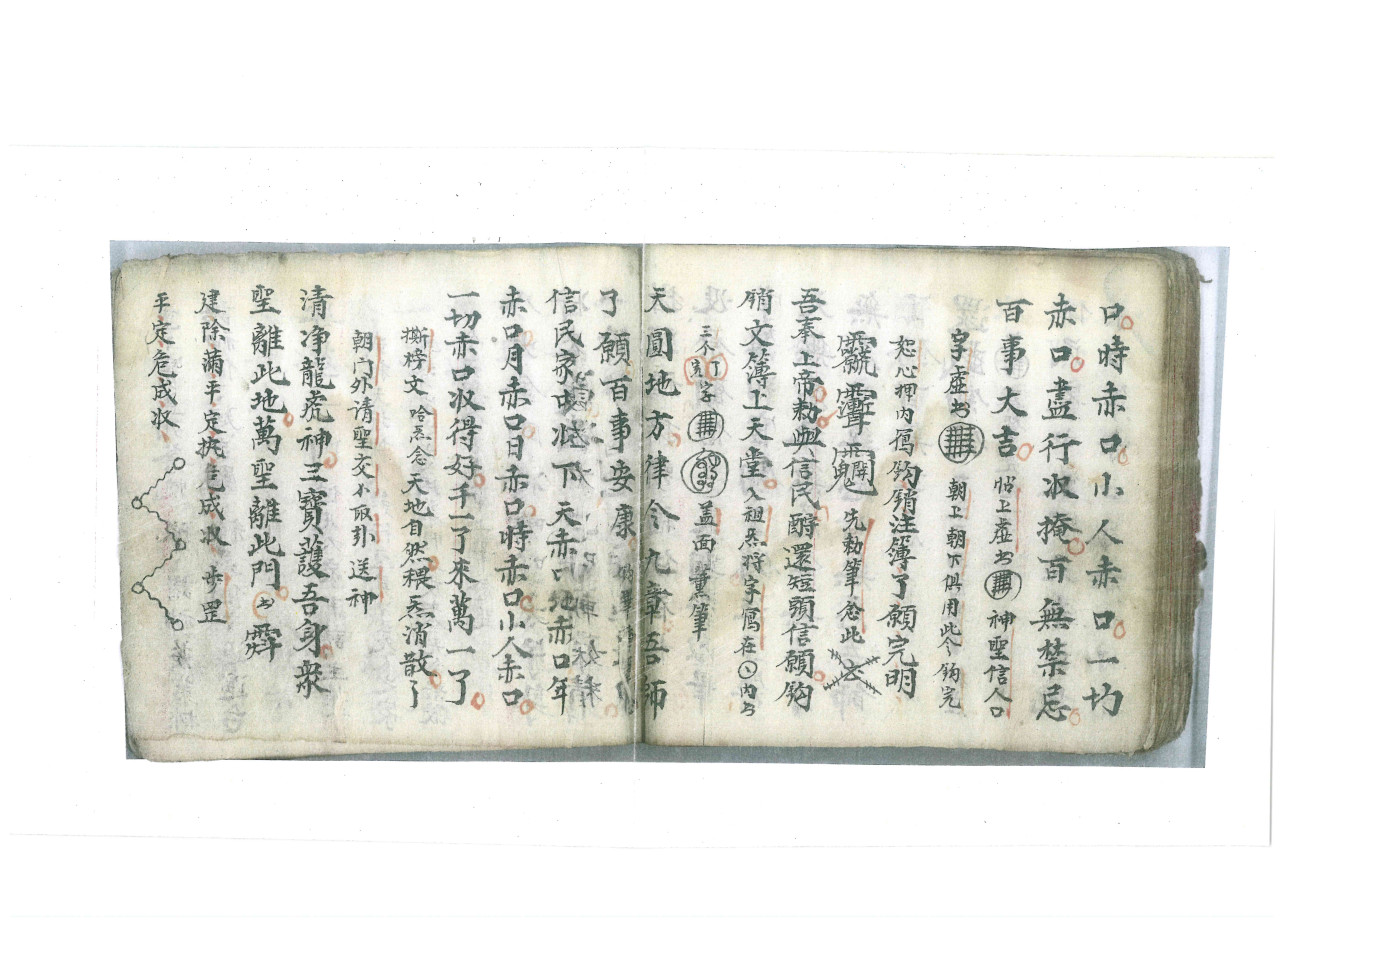 口時赤口小人赤口一切
赤口盡行收掩百無禁忌
百事大吉 帖上虛書 神聖信人口
字虛書 朝上朝下俱用此令鈎完
恕心押內馬鈎銷注簿了願完明
先勅筆念此
吾奉上帝勅與信民酧還短頭信願鈎
銷文簿上天堂入祖炁将字寫在內書
三个字 蓋面薰筆
天圓地方律令九章吾師
了願百事安康
信民家中收下天赤口地赤口年
赤口月赤口日赤口時赤口小人赤口
一切赤口收得好千一了來萬一了
撕榜文哈炁念天地自然穢炁消散了
朝门外请聖交小取卦送神
清净龍虎神三寳護吾身衆
聖離此地萬聖離此門書
建除滿平定执危成收步罡
平定危成收